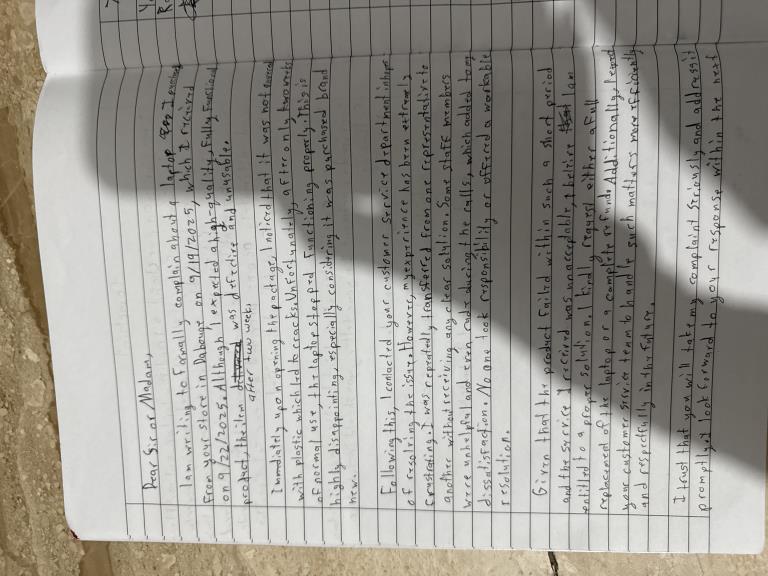 Dear Sir or Madam,
I am writing to formally complain about a laptop I
from your store in Dabouq on 9/19/2025, which I received
on 9/22/2025. Although I expected a high-quality, fully functional
product, the item was defective and unusable.
after two weeks.
Immediately upon opening the package, I noticed that it was not
with plastic which led to cracks. Unfortunately, after only two weeks
of normal use, the laptop stopped functioning properly. This is
highly disappointing, especially considering it was purchased brand
new.
Following this, I contacted your customer service department in hope
of resolving the issue. However, my experience has been extremely
frustrating. I was repeatedly transferred from one representative to
another without receiving any clear solution. Some staff members
were unhelpful and even rude during the calls, which added to my
dissatisfaction. No one took responsibility or offered a workable
resolution.
Given that the product failed within such a short period
and the service I received was unacceptable, I beleive I am
entitled to a proper solution. I kindly request either a full
replacement of the laptop or a complete refund. Additionally, I
your customer service team to handle such matters more efficiently
and respectfully in the future.
I trust that you will take my complaint seriously and address it
promptly. I look forward to your response within the next